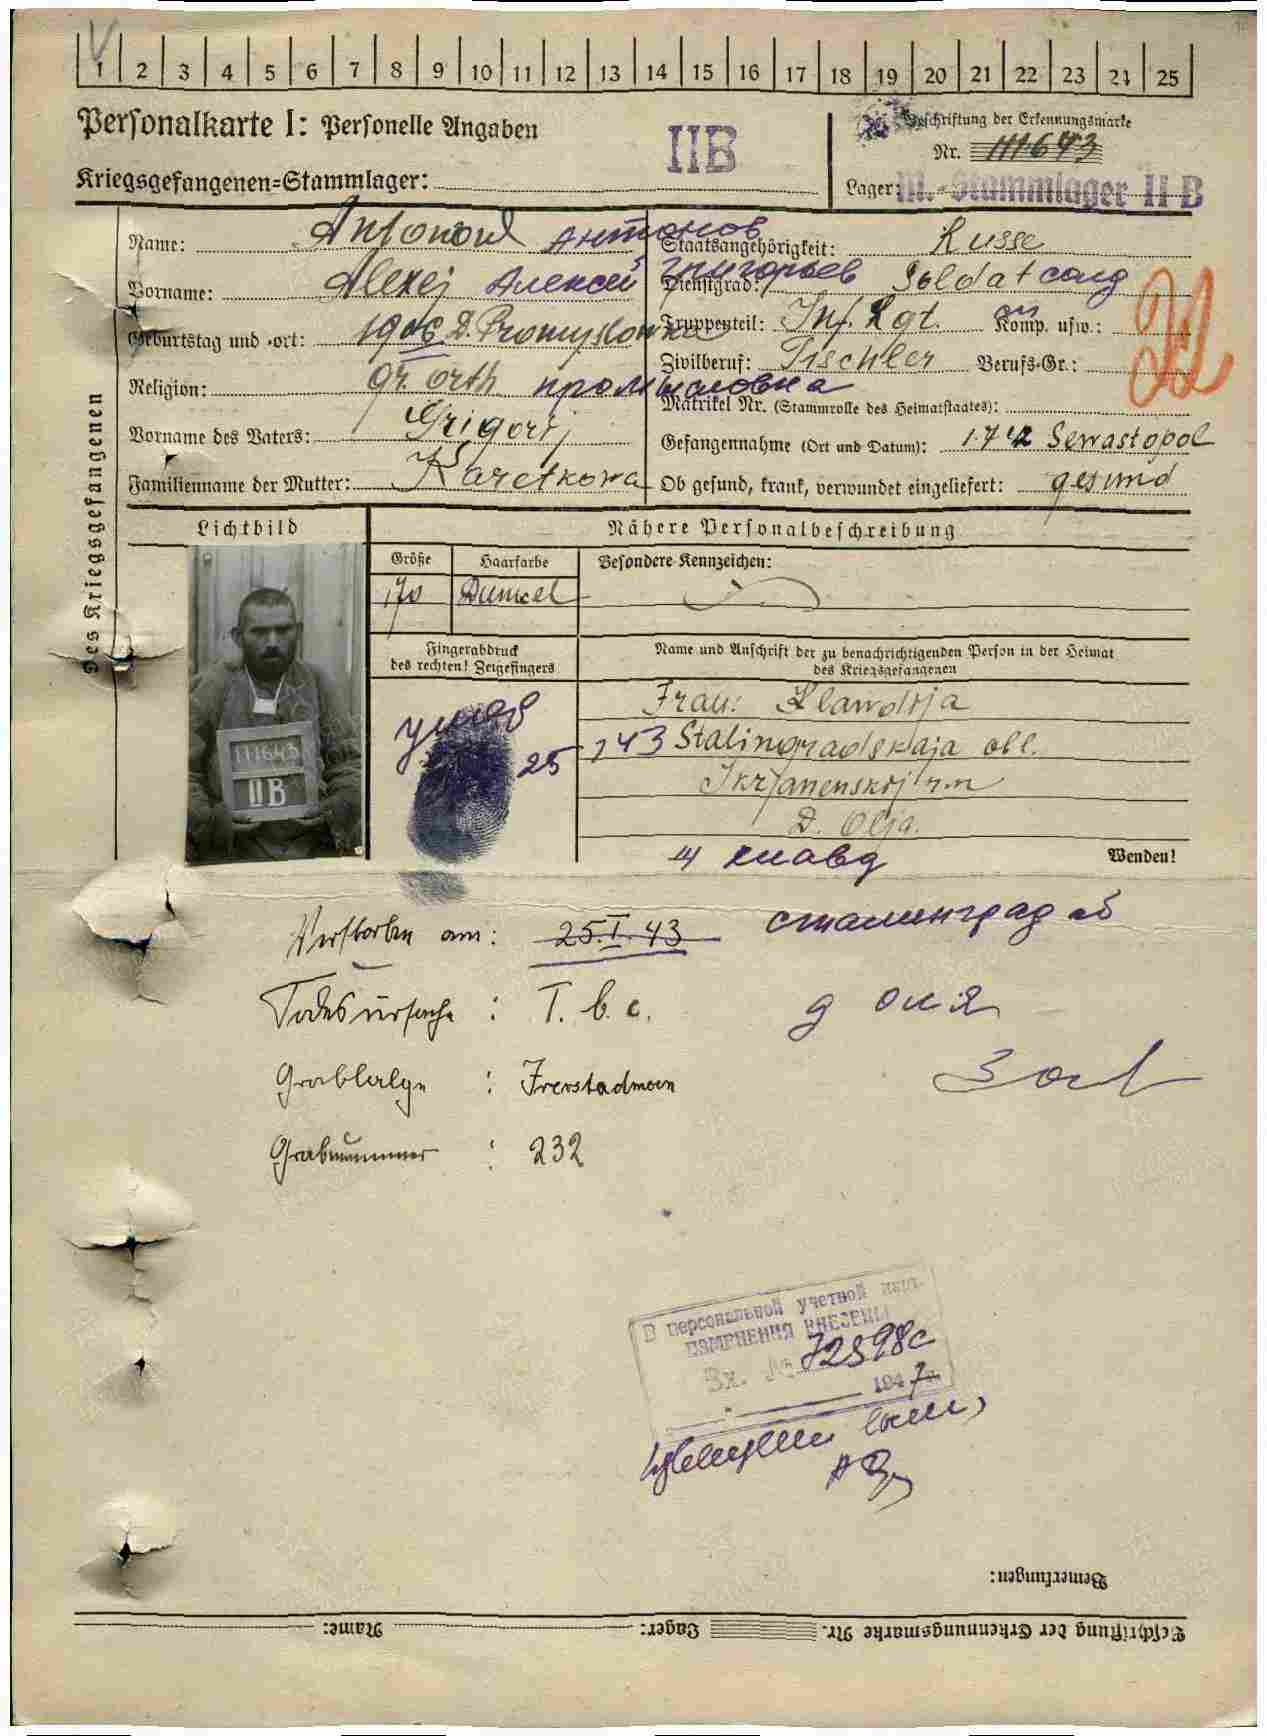 1 2 3 4 5 6 7 8 9 10 11 12 13 14 15 16 17 18 19 20 21 22 23 24 25
Personalkarte I: Personelle Angaben
IIB
Beschriftung der Erkennungsmarke
Nr. 111643
Kriegsgefangenen=Stammlager:
Lager: M.-Stammlager II B
Des Kriegsgefangenen
Name: Antonow Антонов
Staatsangehörigkeit: Russe
Vorname: Alexej Алексей Григорьев
Dienstgrad: Soldat солд
Geburtstag und -ort: 1906 D. Promyslowka
Truppenteil: Inf. Rgt. Komp. usw.:
Religion: gr. orth. Промысловка
Zivilberuf: Tischler Berufs-Gr.:
Matrikel Nr. (Stammrolle des Heimatstaates):
Vorname des Vaters: Grigorij
Gefangennahme (Ort und Datum): 1.7.42 Sewastopol
Familienname der Mutter: Karetkowa
Ob gesund, krank, verwundet eingeliefert: gesund
Lichtbild
Nähere Personalbeschreibung
Größe
Haarfarbe
Besondere Kennzeichen:
170
Dunkel
Fingerabdruck
des rechten! Zeigefingers
Name und Anschrift der zu benachrichtigenden Person in der Heimat
des Kriegsgefangenen
умер
25 1 43
Frau: Klawdija
Stalingradskaja obl.
D. Olja.
111643
IIB
клавд
Wenden!
Verstorben am: 25.I.43
сталинград об
Todesursache : T. b. c.
д оля
Grablage :
Grabnummer : 232
В персональной учетной
изменения внесены
Вх. № 72598с
1947г.
Bemerkungen:
Beschriftung der Erkennungsmarke Nr. Lager: Name: